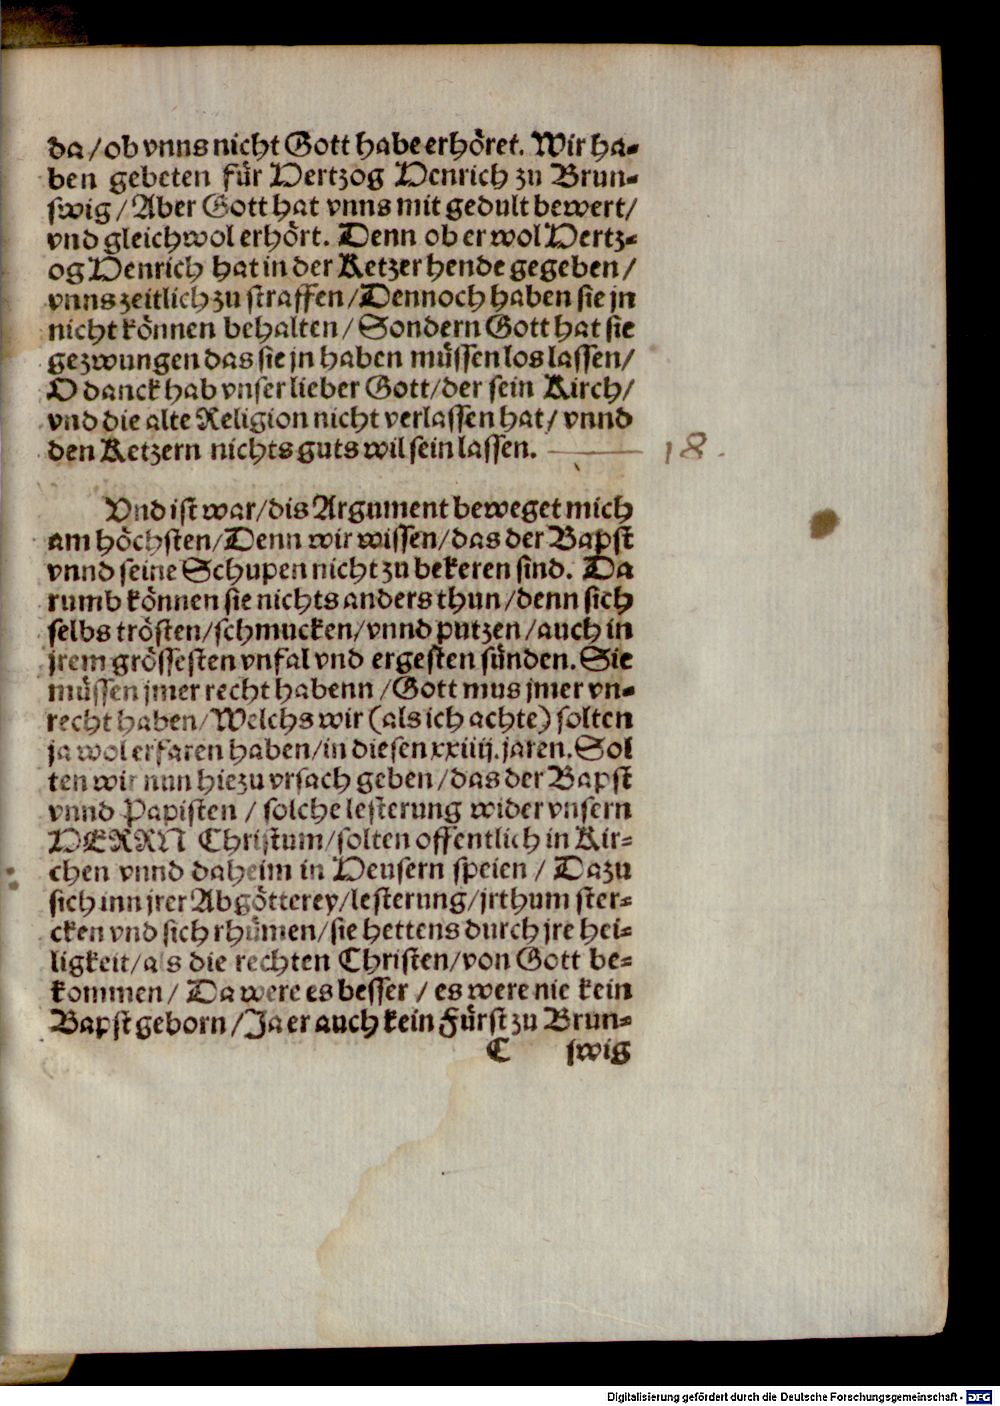 da/ob vnns nicht Gott habe erhöret. Wir ha-
ben gebeten für Hertzog Henrich zu Brun-
swig/Aber Gott hat vnns mit gedult bewert/
vnd gleichwol erhört. Denn ob er wol Hertz-
og Henrich hat in der Ketzer hende gegeben/
vnns zeitlich zu straffen/Dennoch haben sie jn
nicht können behalten/Sondern Gott hat sie
gezwungen das sie jn haben müssen los lassen/
O danck hab vnser lieber Gott/der sein Kirch/
vnd die alte Religion nicht verlassen hat/vnnd
den Ketzern nichts guts wil sein lassen. 18.
Vnd ist war/dis Argument beweget mich
am höchsten/Denn wir wissen/das der Bapst
vnnd seine Schupen nicht zu bekeren sind. Da
rumb können sie nichts anders thun/denn sich
selbs trösten/schmucken/vnnd putzen/auch in
jrem grössesten vnfal vnd ergesten sünden. Sie
müssen jmer recht habenn/Gott mus jmer vn-
recht haben/Welchs wir (als ich achte) solten
ja wol erfaren haben/in diesen xxiiij. jaren. Sol
ten wir nun hiezu vrsach geben/das der Bapst
vnnd Papisten/solche lesterung wider vnsern
HERRN Christum/solten offentlich in Kir-
chen vnnd daheim in Heusern speien/Dazu
sich inn jrer Abgötterey/lesterung/jrthum ster-
cken vnd sich rhümen/sie hettens durch jre hei-
ligkeit/als die rechten Christen/von Gott be-
kommen/Da were es besser/es were nie kein
Bapst geborn/Ja er auch kein Fürst zu Brun-
C swig
Digitalisierung gefördert durch die Deutsche Forschungsgemeinschaft - DFG